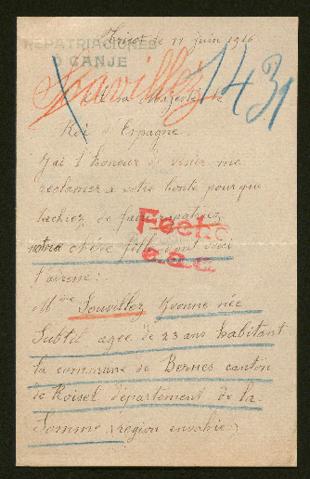 REPATRIACIONES
O CANJE
Tricot le 17 juin 1916
Souvillez 1431
A sa Majesté le
Roi d'Espagne
J'ai l'honneur de venir me
réclamer a votre bonté pour que
tachiez de faire rapatriez
notre chère fille dont voici
l'adresse :
Mme Souvillez Yvonne née
agée de 23 ans habitant
la commune de Bernes canton
de Roisel département de la
Somme (région envahie)